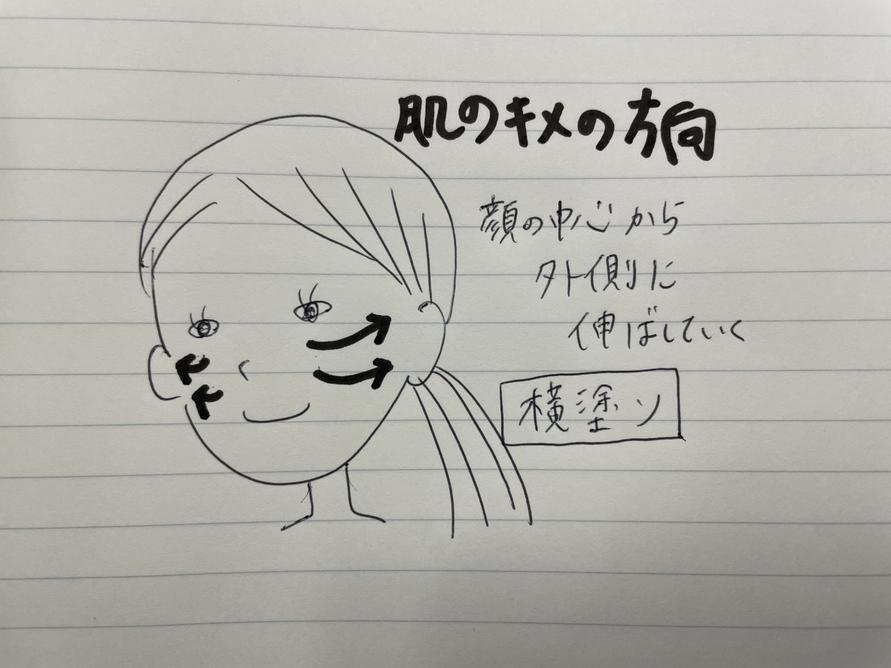 肌のキメの方向
顔の中心から
外側に
伸ばしていく
横塗り